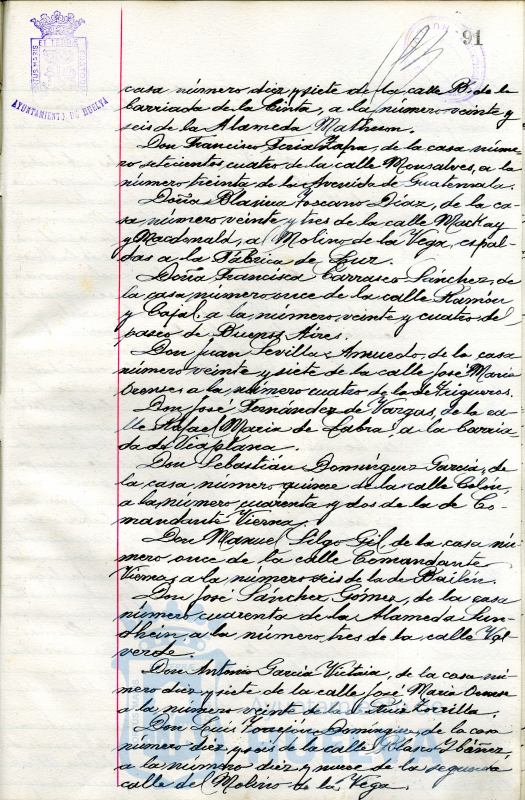 91
AYUNTAMIENTO DE HUELVA
casa número diez y siete de la calle B, de la
barriada de la Cinta, a la número veinte y
seis de la Alameda Matheson.
Don Francisco Feria Zafra, de la casa núme-
ro, setecientos cuatro de la calle Monsalves, a la
número treinta de la Avenida de Guatemala.
Doña Blasina Toscano Díaz, de la ca-
sa, número veinte y tres de la calle Mackay
y Macdonald, a Molino de la Vega, espal-
das a la Fábrica de Luz.
Doña Francisca Carrasco Sánchez, de
la casa, número once de la calle Ramón
y Cajal, a la número, veinte y cuatro, del
paseo de Buenos Aires.
Don Juan Sevilla Amuedo, de la casa
número veinte y siete de la calle José María
Orense, a la número cuatro de la de Trigueros.
Don José Fernández de Vargas, de la ca-
lle Rafael María de Labra, a la barria-
da de Viaplana.
Don Sebastián Domínguez García, de
la casa, número quince de la calle Colón,
a la número, cuarenta y dos de la de Co-
mandante Vierna.
Don Manuel Silgo Gil, de la casa nú-
mero once de la calle Comandante
Vierna, a la número seis de la de Bailén.
Don José Sánchez Gómez, de la casa
número cuarenta de la Alameda Sun-
dheim, a la número, tres de la calle Val-
verde.
Don Antonio García de la casa nú-
mero diez y siete de la calle José María Orense
a la número veinte de la de Ruiz Zorrilla.
Don Luis Domínguez, de la casa
número diez y seis de la calle Blasco Ibáñez
a la número diez y nueve de la segunda
calle del Molino de la Vega.